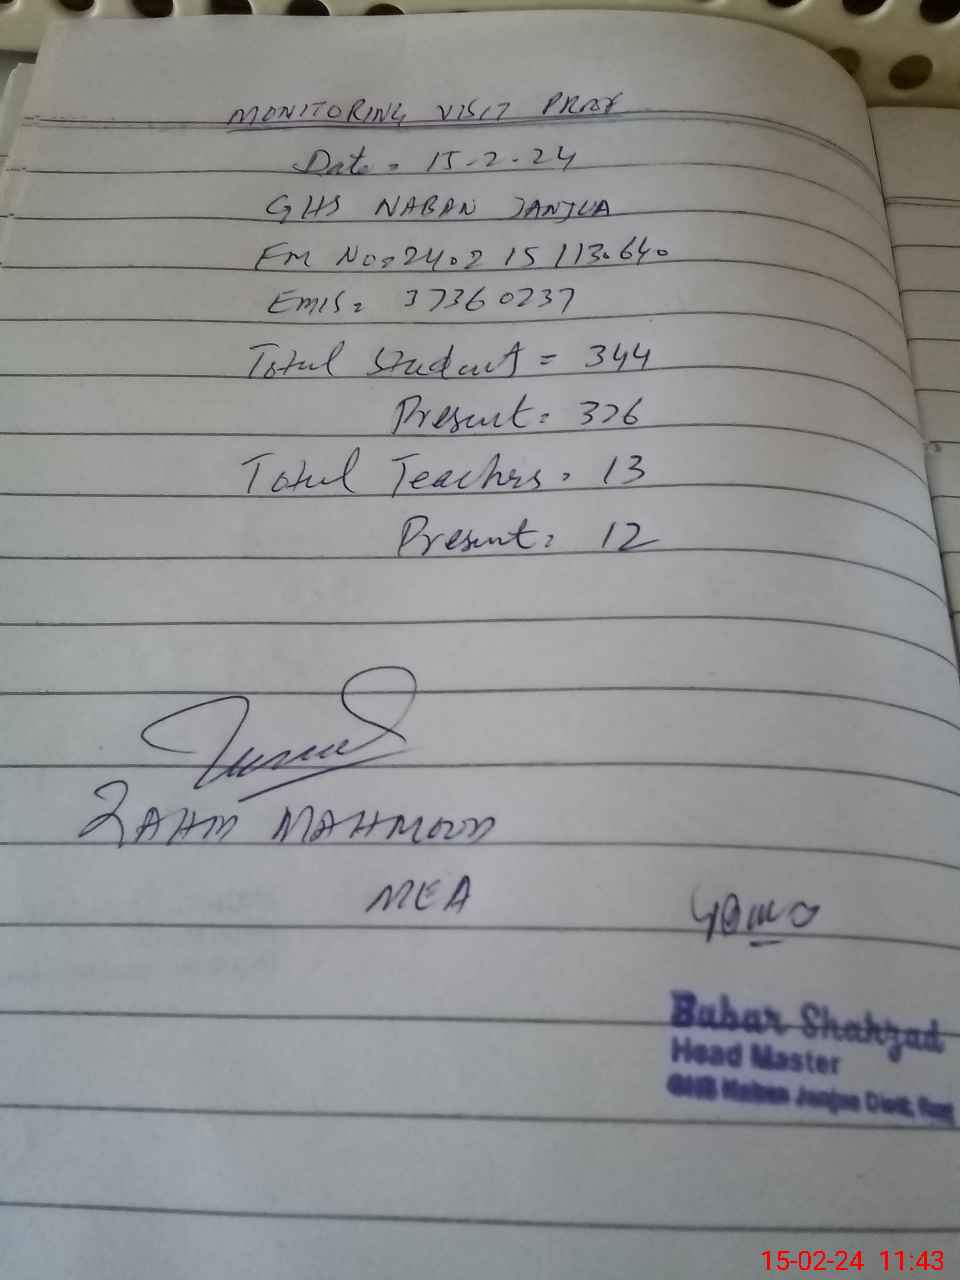 MONITORING VISIT PROF
Date = 15-2-24
GHS NABAN JANJUA
EM No = 240215113640
EMIS = 37360237
Total Students = 344
Present = 326
Total Teachers = 13
Present = 12
MAHMOOD
MEA
Babar Shahzad
Head Master
GHS Naban Janjua Distt,
15-02-24 11:43